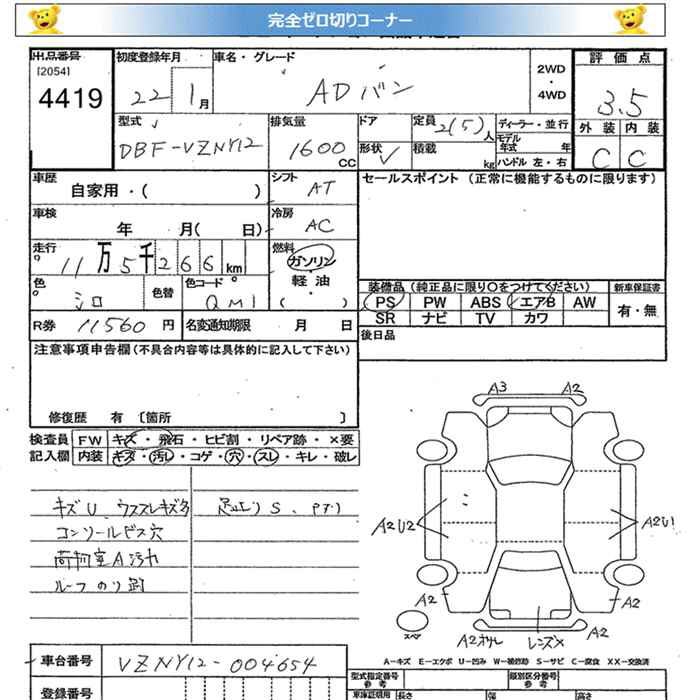 完全ゼロ切りコーナー
出品番号 初度登録年月 車名・グレード 評価点
[2054]
4419 22 1月 ADバン 2WD・4WD 3.5
型式 排気量 ドア 定員 2(5)人 ディーラー・並行 外装 内装
DBF-VZNY12 1600cc 形状 V 積載 kg モデル年式 年 ハンドル 左・右 C C
車歴 自家用・( ) シフト AT セールスポイント (正常に機能するものに限ります)
車検 年 月( 日) 冷房 AC
走行 11万5千266km 燃料 ガソリン・軽油・( )
色 シロ 色替 色コード QM1
装備品(純正品に限り○をつけてください) 新車保証書
PS PW ABS エアB AW 有・無
SR ナビ TV カワ
R券 11560円 名変通知期限 月 日 後日品
注意事項申告欄(不具合内容等は具体的に記入して下さい)
修復歴 有 [箇所 ]
検査員 FW キズ・飛石・ヒビ割・リペア跡・×要
記入欄 内装 キズ・汚レ・コゲ・穴・スレ・キレ・破レ
キズU ウスズレキズ多
コンソールビス穴
荷物室A汚れ
ルーフのり跡
A3 A2
A2U2 A2U1
A2 A2
スペア
A2オサレ レンズ× A2
A-キズ E-エクボ U-凹み W-補修跡 S-サビ C-腐食 XX-交換済
車台番号 VZNY12-004654
登録番号
型式指定番号 参考 類別区分番号 参考
車庫証明用 参考 長さ 幅 高さ